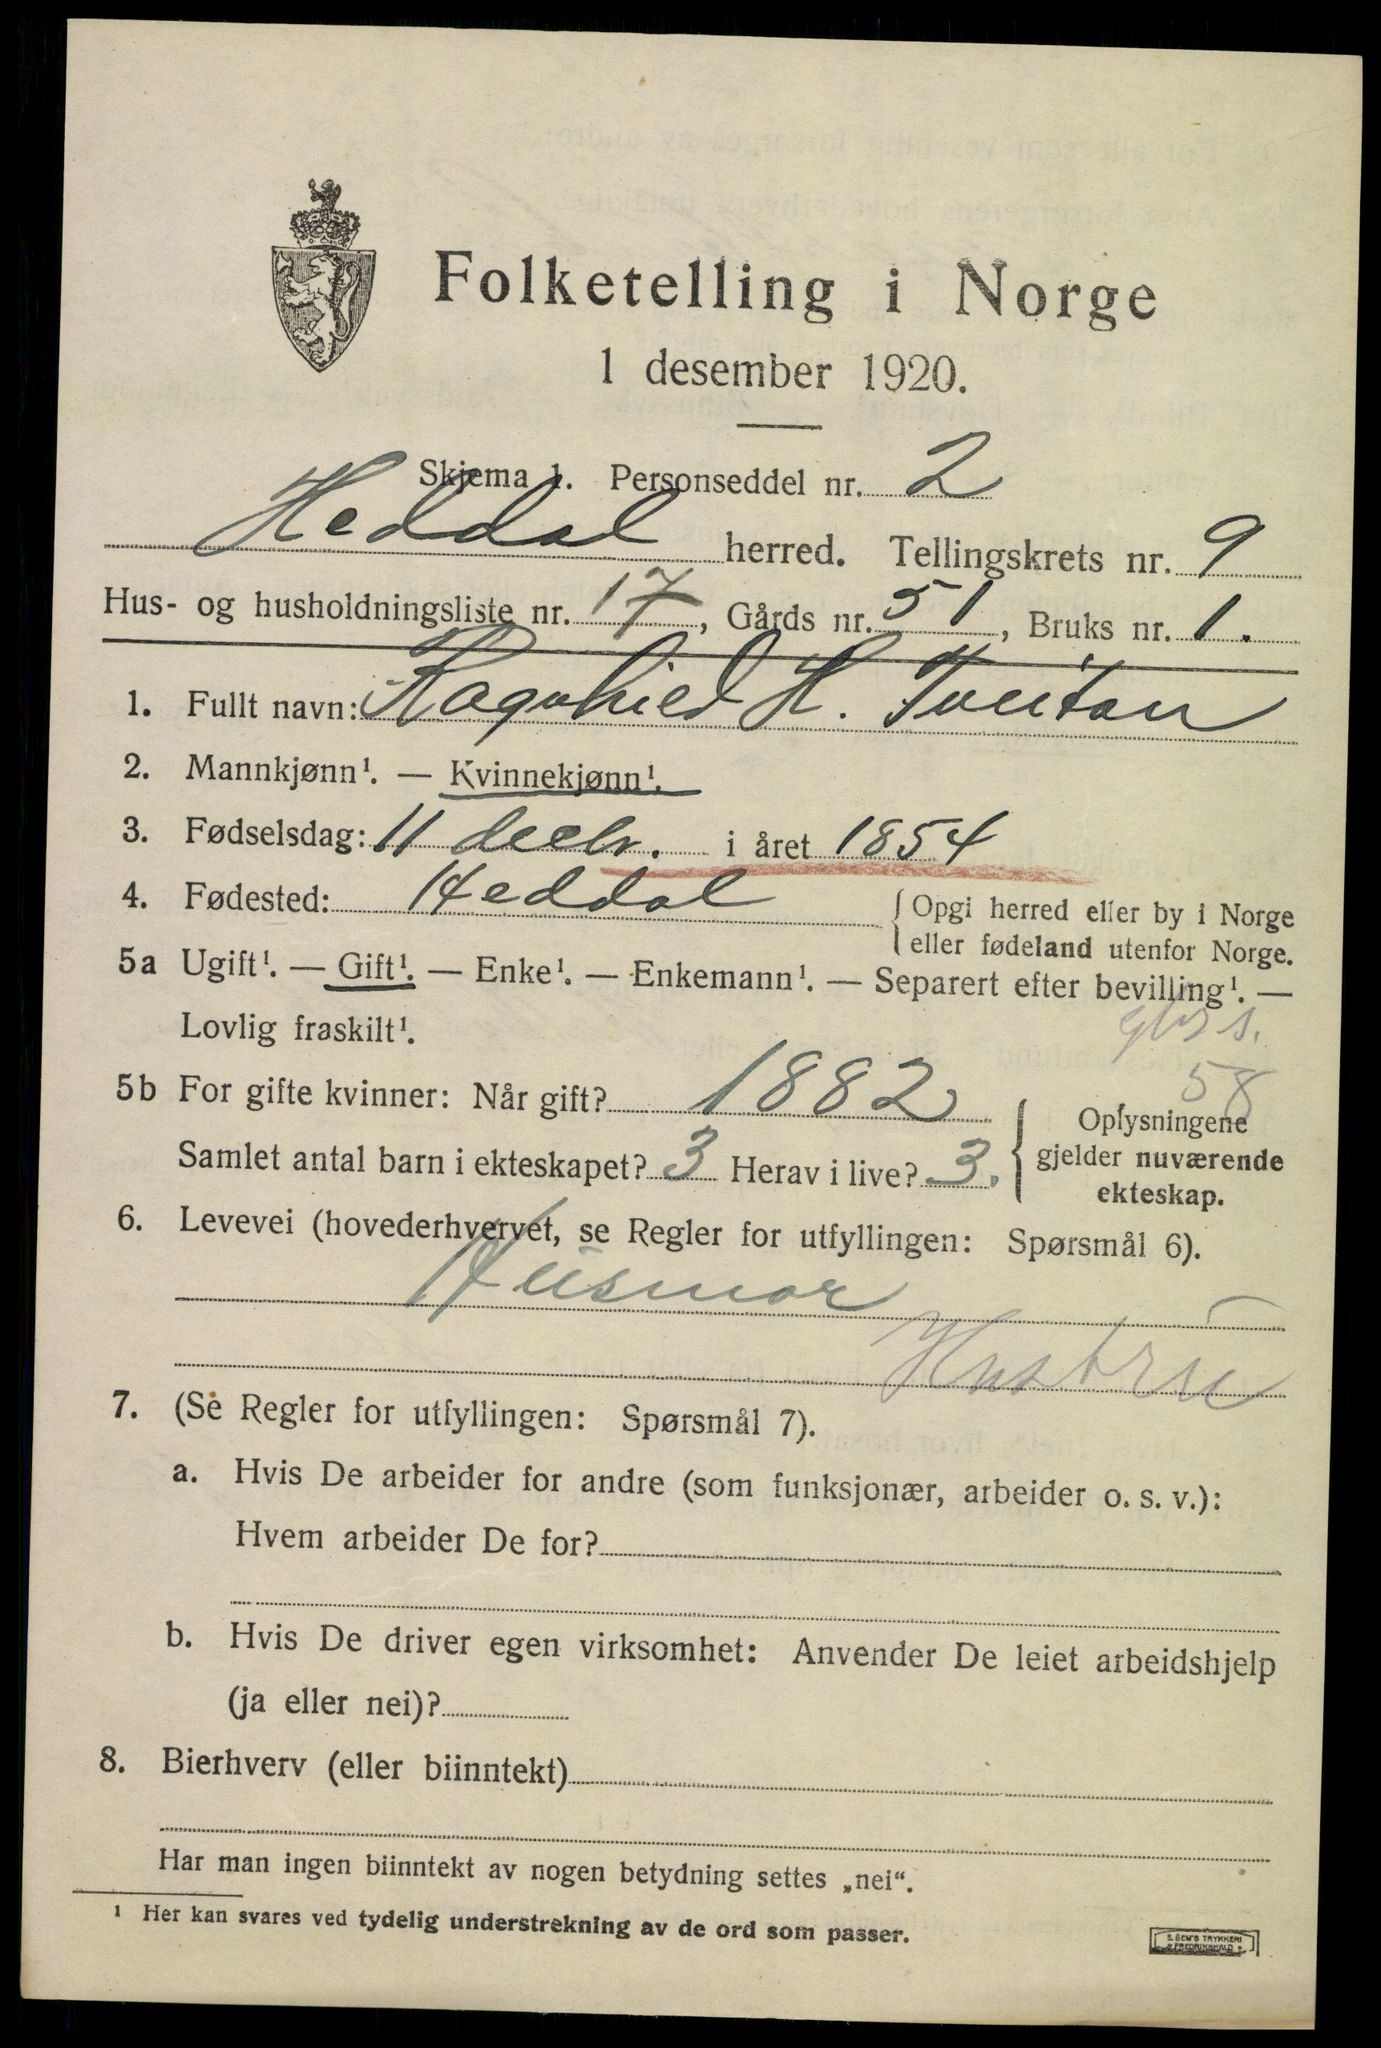 Folketelling i Norge
1 desember 1920.
Skjema 1. Personseddel nr. 2
Heddal herred. Tellingskrets nr. 9
Hus- og husholdningsliste nr. 17, Gårds nr. 51, Bruks nr. 1.
1. Fullt navn: Ragnhild H. Tveitan
2. Mannkjønn¹. — Kvinnekjønn¹.
3. Fødselsdag: 11 decbr. i året 1854
4. Fødested: Heddal {Opgi herred eller by i Norge
eller fødeland utenfor Norge.
5a Ugift¹. — Gift¹. — Enke¹. — Enkemann¹. — Separert efter bevilling¹. —
Lovlig fraskilt¹.
58
5b For gifte kvinner: Når gift? 1882
Samlet antal barn i ekteskapet? 3 Herav i live? 3.
{Oplysningene
gjelder nuværende
ekteskap.
6. Levevei (hovederhvervet, se Regler for utfyllingen: Spørsmål 6).
Husmor
Hustru
7. (Se Regler for utfyllingen: Spørsmål 7).
a. Hvis De arbeider for andre (som funksjonær, arbeider o. s. v.):
Hvem arbeider De for?
b. Hvis De driver egen virksomhet: Anvender De leiet arbeidshjelp
(ja eller nei)?
8. Bierhverv (eller biinntekt)
Har man ingen biinntekt av nogen betydning settes „nei“.
¹ Her kan svares ved tydelig understrekning av de ord som passer.
S. SEM'S TRYKKERI
FREDRIKSHALD